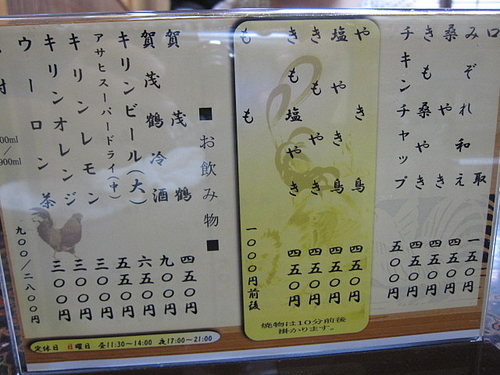 口取 一五〇円
みぞれ和え 四五〇円
桑やき 四五〇円
きも桑やき 四五〇円
チキンチャップ 五〇〇円
やき鳥 四五〇円
塩やき鳥 四五〇円
きもやき 四五〇円
きも塩やき 四五〇円
もも 一〇〇〇円前後
焼物は10分前後
掛かります。
■お飲み物■
賀茂鶴 四五〇円
賀茂鶴冷酒 九〇〇円
キリンビール(大) 六五〇円
アサヒスーパードライ(中) 五五〇円
キリンレモン 三〇〇円
キリンオレンジ 三〇〇円
ウーロン茶 三〇〇円
九〇〇/二八〇〇円
定休日 日曜日 昼11:30~14:00 夜17:00~21:00